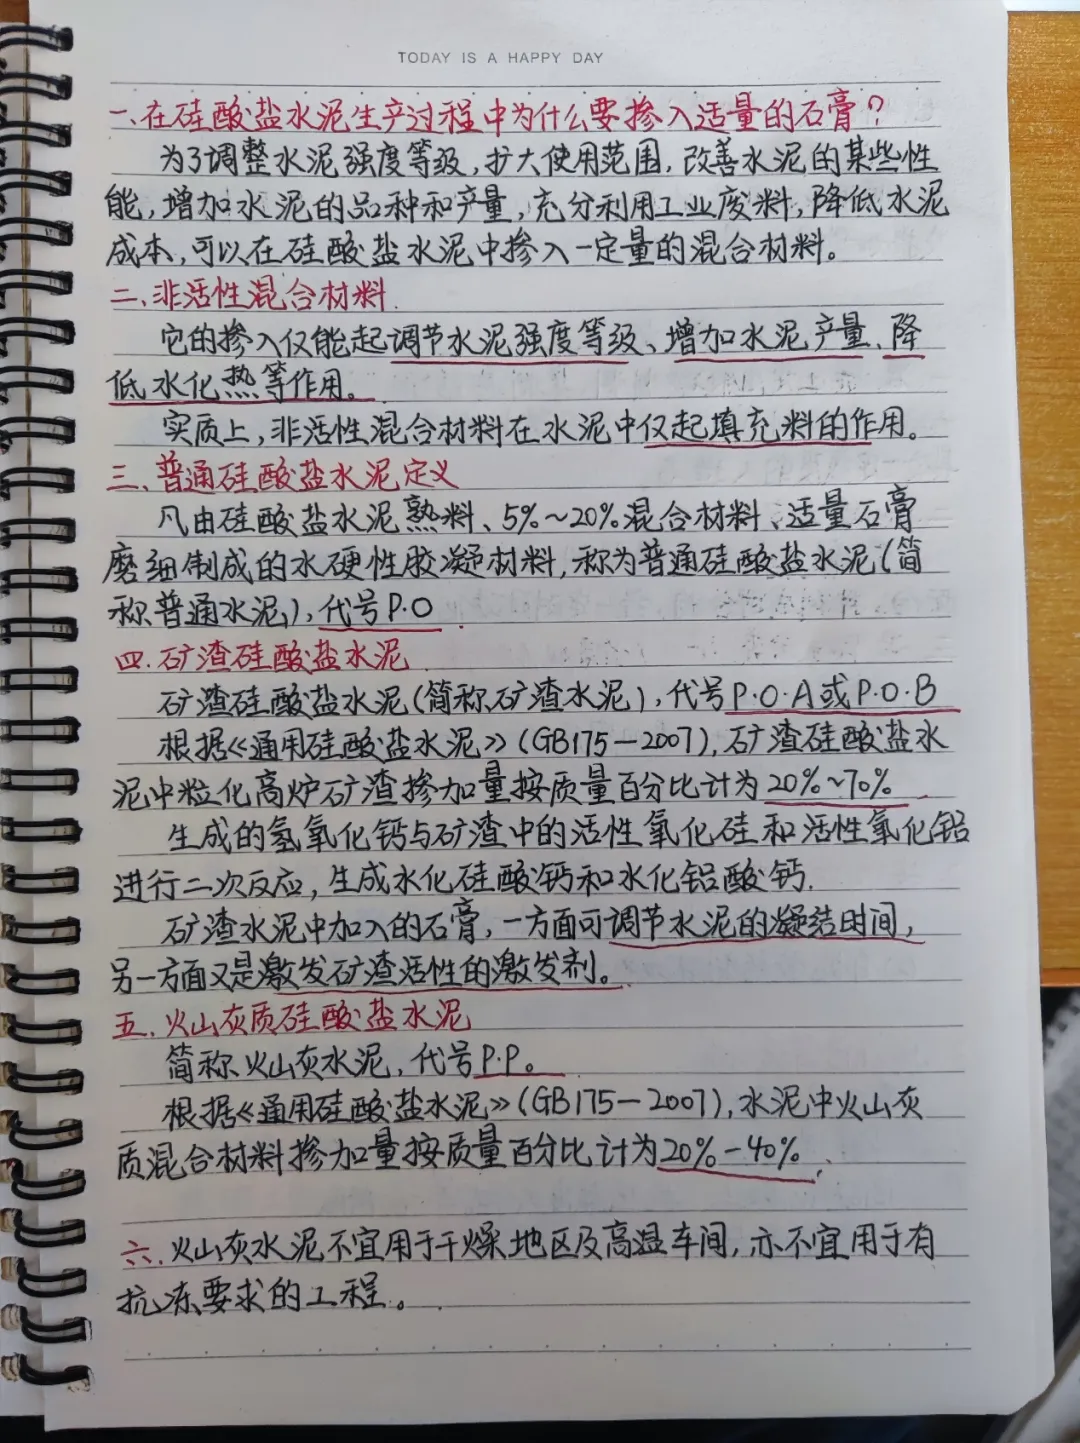 TODAY IS A HAPPY DAY
一、在硅酸盐水泥生产过程中为什么要掺入适量的石膏?
为了调整水泥强度等级,扩大使用范围,改善水泥的某些性
能,增加水泥的品种和产量,充分利用工业废料,降低水泥
成本,可以在硅酸盐水泥中掺入一定量的混合材料。
二、非活性混合材料.
它的掺入仅能起调节水泥强度等级、增加水泥产量、降
低水化热等作用。
实质上,非活性混合材料在水泥中仅起填充料的作用。
三、普通硅酸盐水泥定义
凡由硅酸盐水泥熟料、5%~20%混合材料、适量石膏
磨细制成的水硬性胶凝材料,称为普通硅酸盐水泥(简
称普通水泥),代号P·O
四.矿渣硅酸盐水泥
矿渣硅酸盐水泥(简称矿渣水泥),代号P·O·A或P·O·B
根据《通用硅酸盐水泥》(GB175—2007),矿渣硅酸盐水
泥中粒化高炉矿渣掺加量按质量百分比计为20%~70%
生成的氢氧化钙与矿渣中的活性氧化硅和活性氧化铝
进行二次反应,生成水化硅酸钙和水化铝酸钙.
矿渣水泥中加入的石膏,一方面可调节水泥的凝结时间,
另一方面又是激发矿渣活性的激发剂。
五.火山灰质硅酸盐水泥
简称火山灰水泥,代号P.P。
根据《通用硅酸盐水泥》(GB175—2007),水泥中火山灰
质混合材料掺加量按质量百分比计为20%-40%.
六.火山灰水泥不宜用于干燥地区及高温车间,亦不宜用于有
抗冻要求的工程。